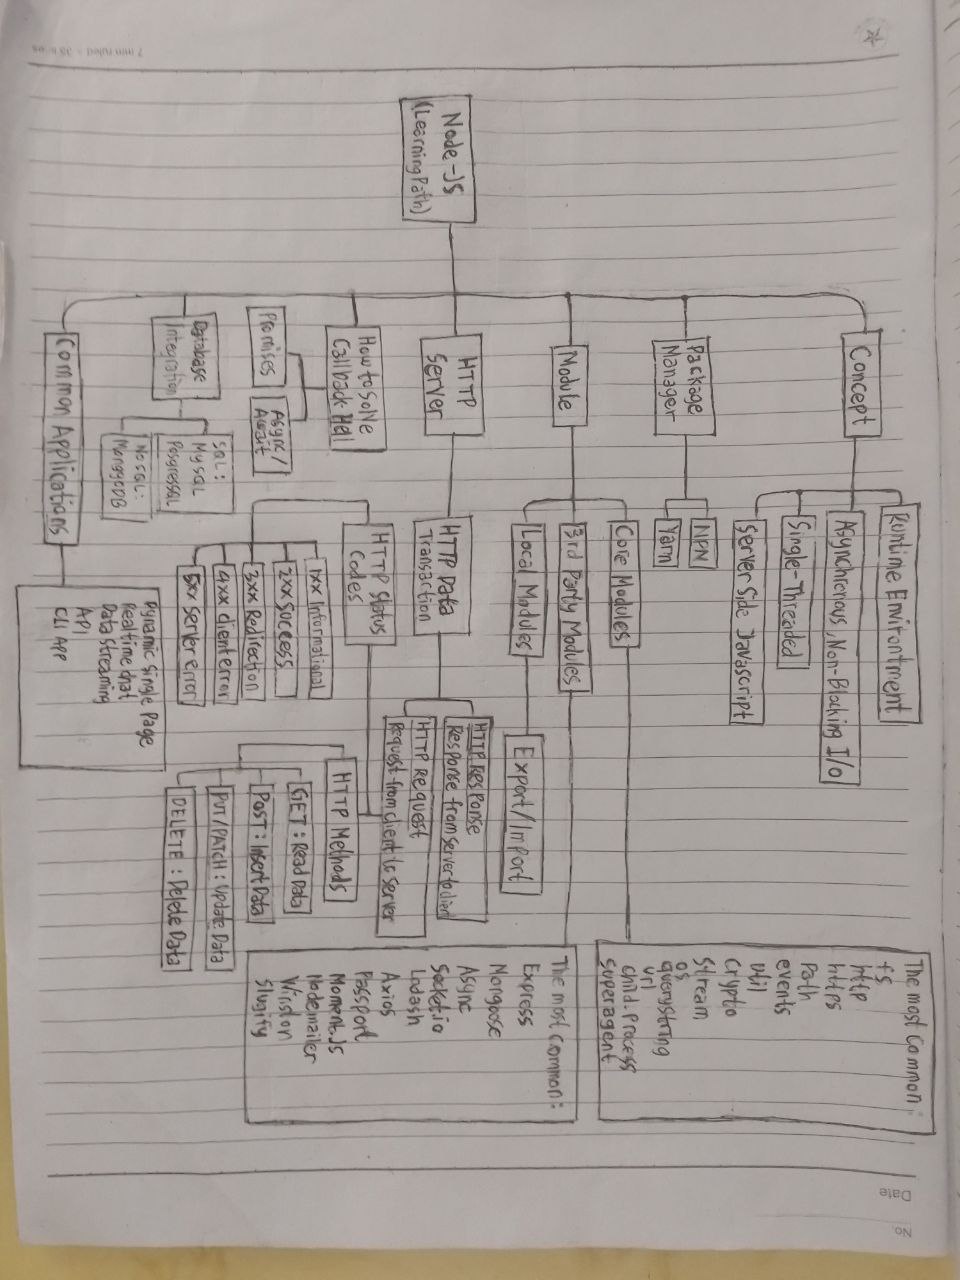 Node-JS
(Learning Path)
Concept
Runtime Environtment
Asynchronous, Non-Blocking I/O
Single-Threaded
Server Side Javascript
Package
Manager
NPN
Yarn
Module
Core Modules
3rd Party Modules
Local Modules
Export/Import
The most Common:
fs
http
https
Path
events
Util
Crypto
Stream
OS
querystring
url
child-process
superagent
The most Common:
Express
Mongoose
Async
Socketio
Lodash
Axios
Passport
Moment.Js
Nodemailer
Winston
Slugify
HTTP
Server
HTTP Data
Transaction
HTTP Response
Response from server to client
HTTP Request
Request from client to server
HTTP Status
Codes
1xx Informational
2xx Success
3xx Redirection
4xx client error
5xx Server error
HTTP Methods
GET: Read Data
POST: Insert Data
PUT/PATCH: Update Data
DELETE: Delete Data
How to Solve
Callback Hell
Promises
Async/
Await
Database
Integration
SQL:
MySQL
PosgresSQL
NoSQL:
MangoDB
Common Applications
Dynamic Single Page
Realtime chat
Data Streaming
API
CLI App
No.
Date